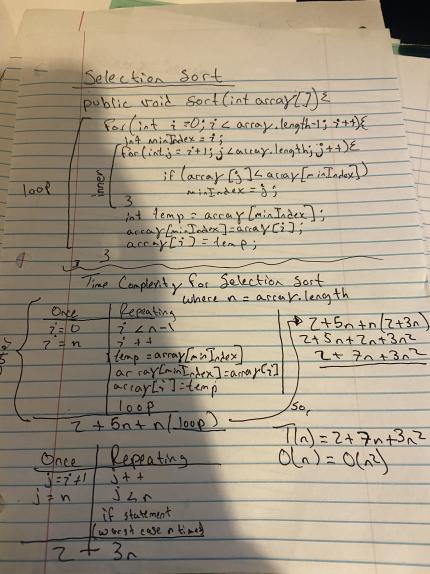 Selection Sort
public void sort(int array[]){
for(int i=0; i<array.length-1; i++){
int minIndex = i;
for(int j = i+1; j<array.length; j++){
if (array[j]<array[minIndex])
minIndex = j;
}
loop
int temp = array[minIndex];
array[minIndex]=array[i];
array[i]=temp;
}
}
Time Complexity for Selection Sort
where n = array.length
Once Repeating
i = 0 i < n-1
i = n i ++
temp=array[minIndex]
array[minIndex]=array[i]
array[i]=temp
loop
2 + 5n + n(loop)
2+5n+n(2+3n)
2+5n+2n+3n²
2+7n+3n²
so,
T(n)=2+7n+3n²
O(n)=O(n²)
Once Repeating
j=i+1 j++
j=n j<n
if statement
(worst case n times)
2 + 3n